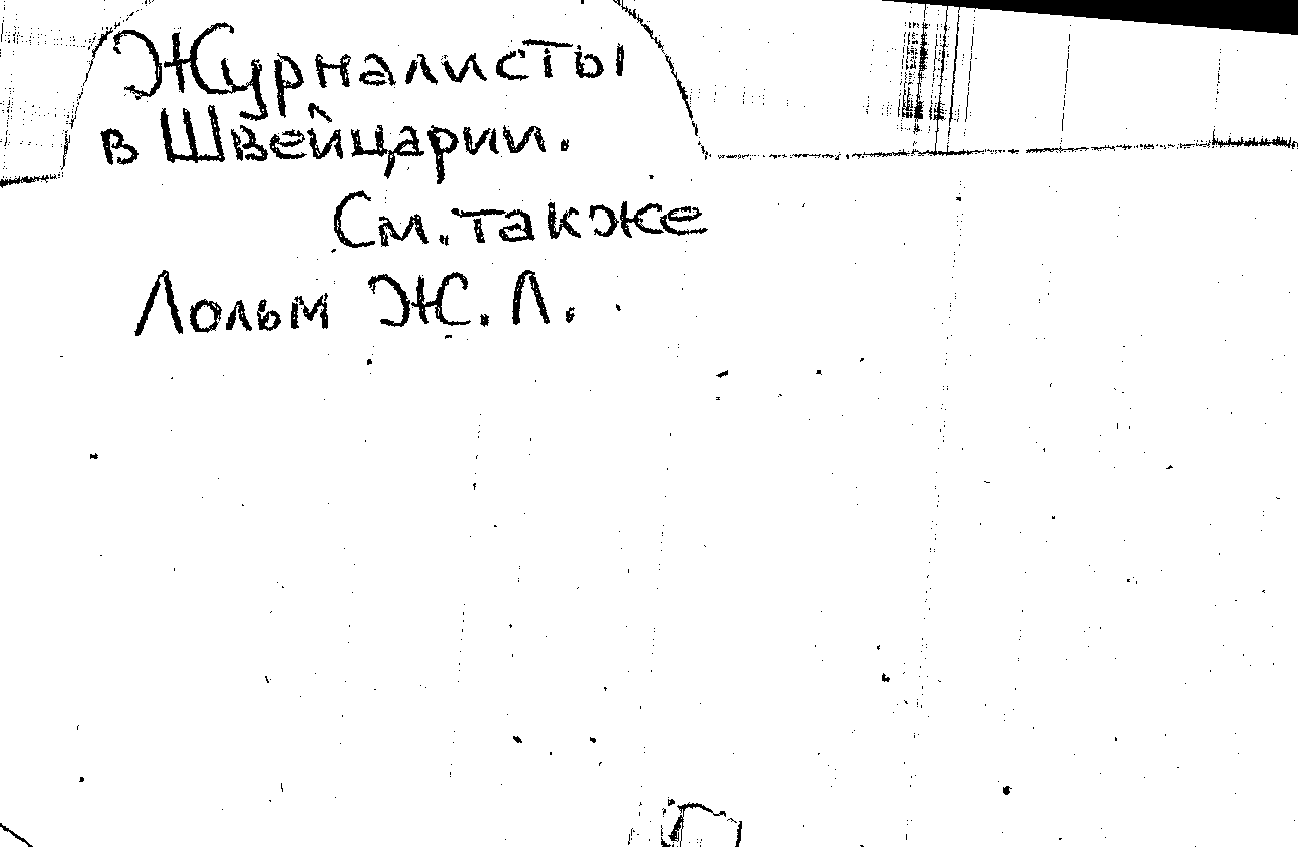 Журналисты
в Швейцарии.
См. также
Лольм Ж. Л.